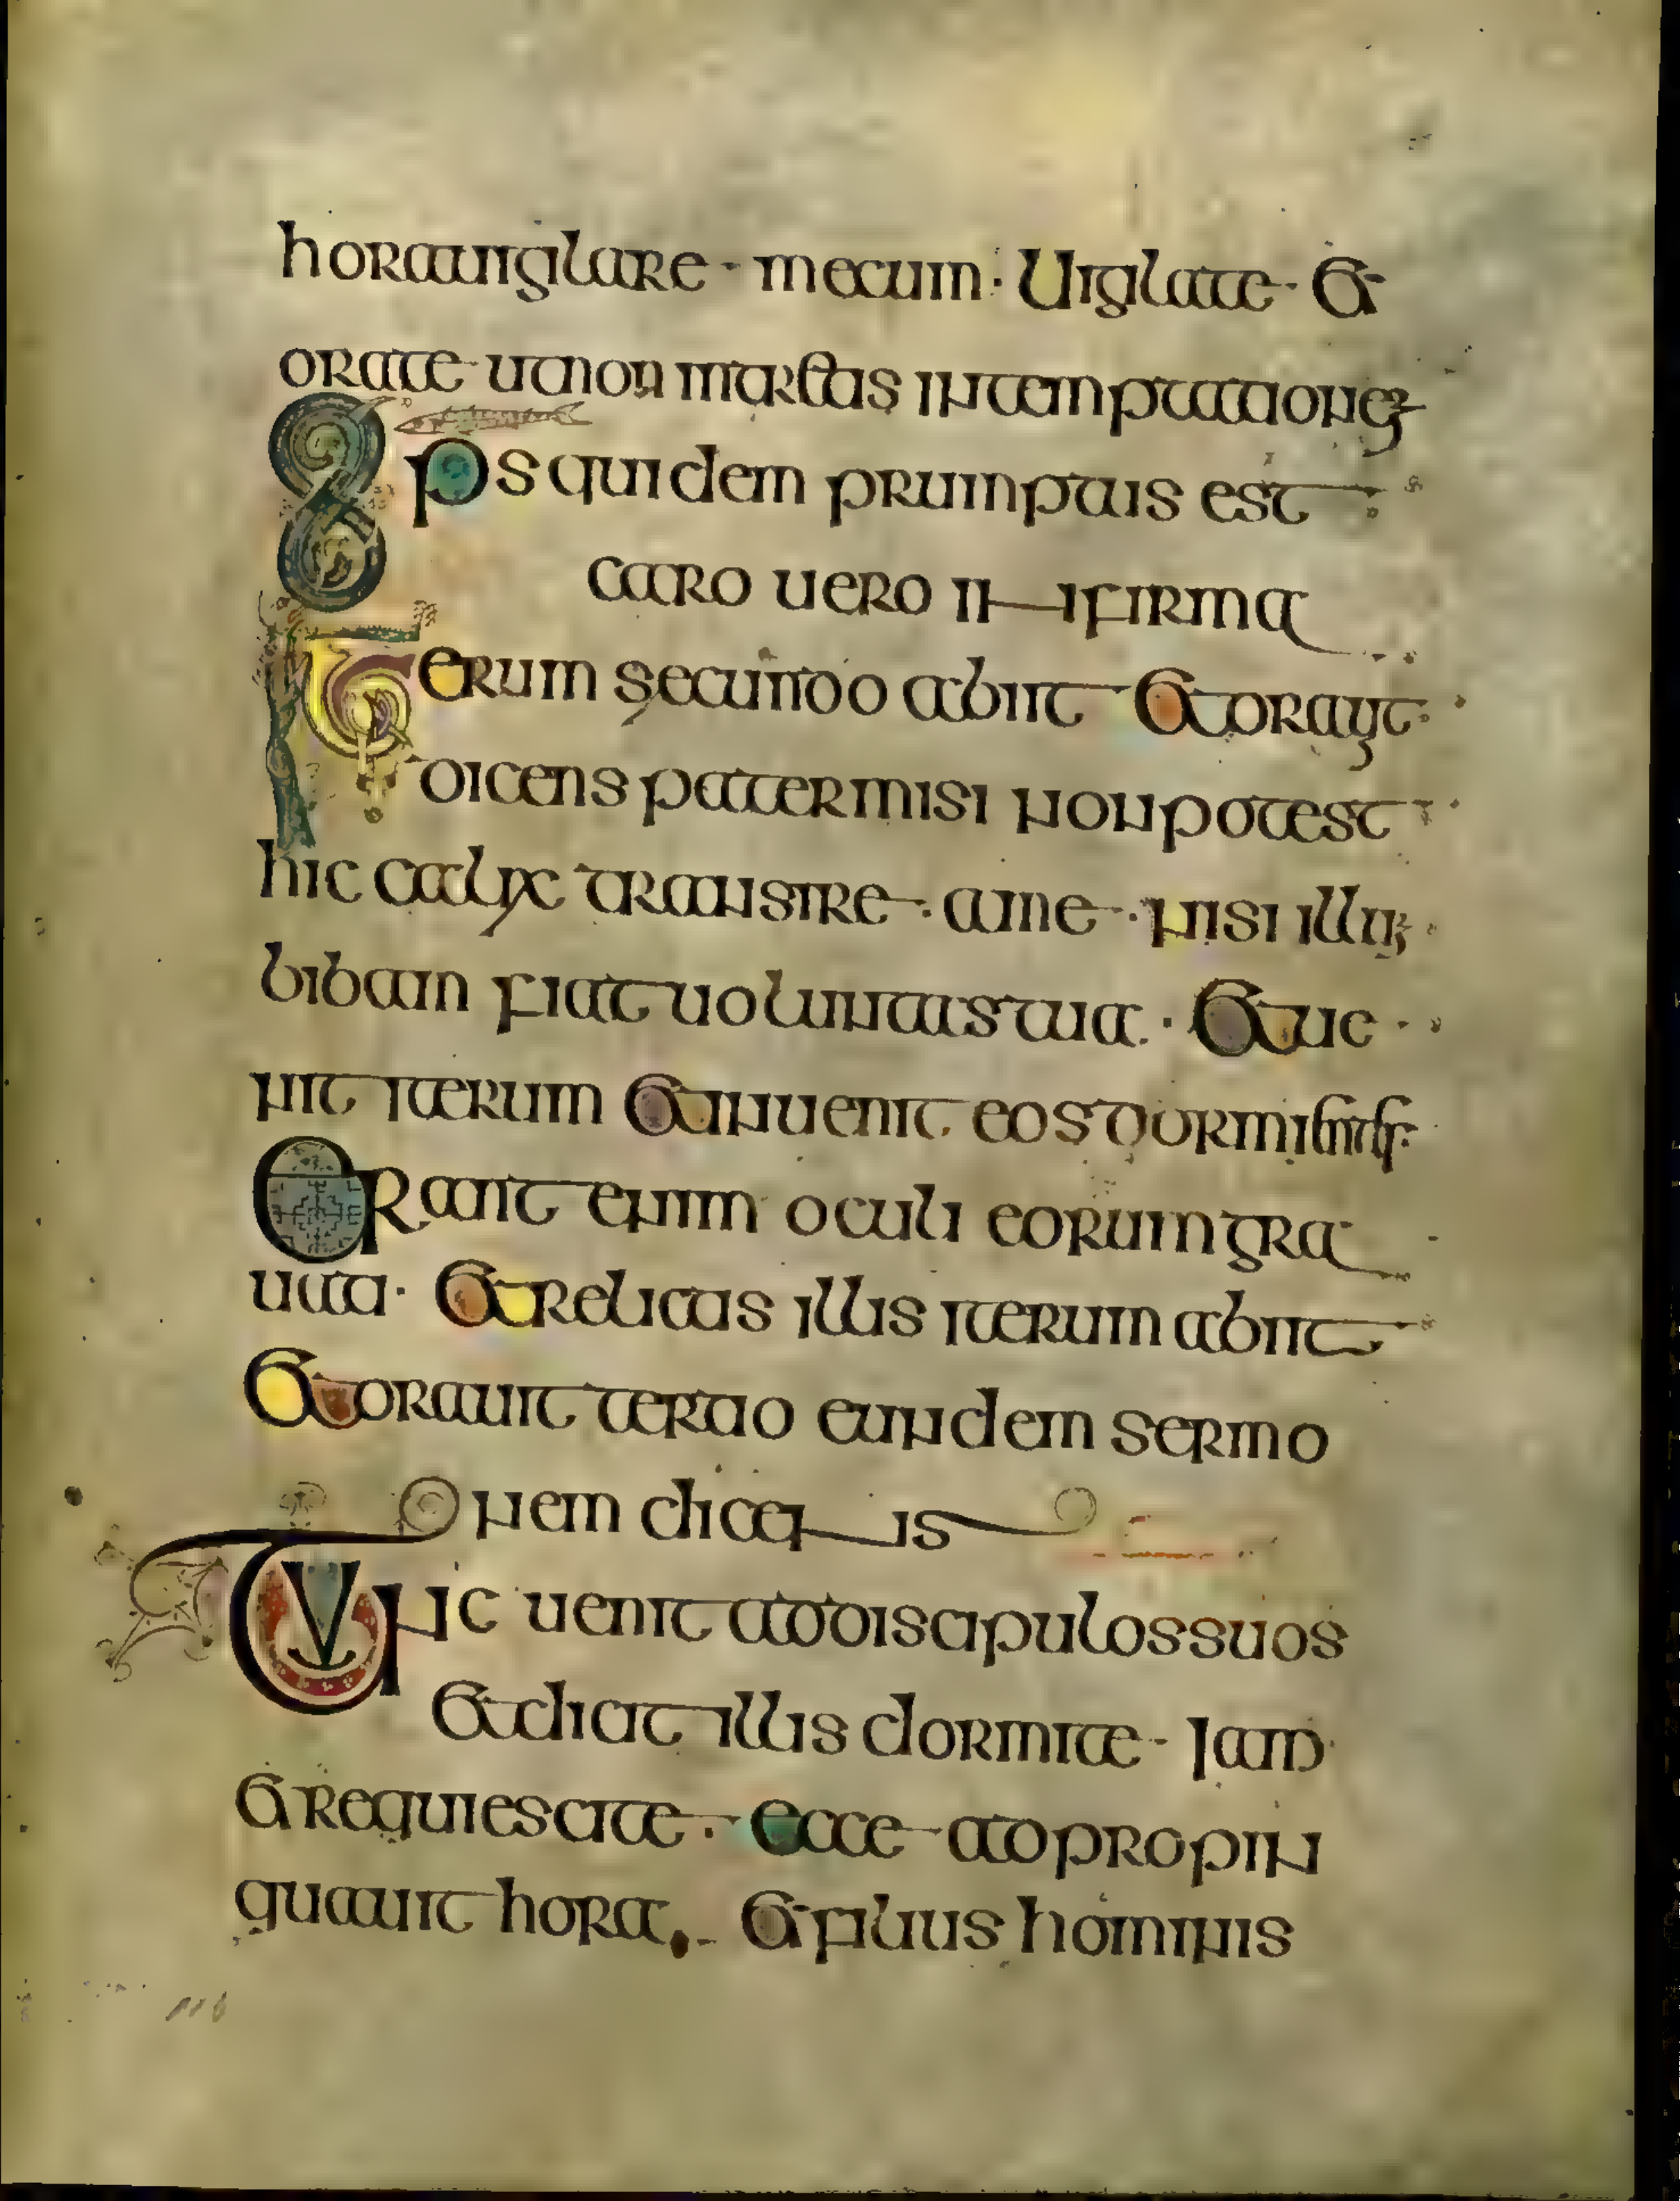 horauiglare · mecum · Uiglate · Et
orate ut non intretis in temptationem
Sps quidem prumptus est
caro uero infirma
Iterum secundo abiit Et orauit
dicens pater mi si non potest
hic calix transire · a me · nisi illum
bibam fiat uoluntas tua · Et ue
nit iterum Et inuenit eos dormientes
Erant enim oculi eorum gra
uati · Et relictis illis iterum abiit
Et orauit tertio eundem sermo
nem dicens
Tunc uenit ad discipulos suos
Et dicit illis dormite · Iam
Et requiescite · ecce adpropin
quauit hora · Et filius hominis